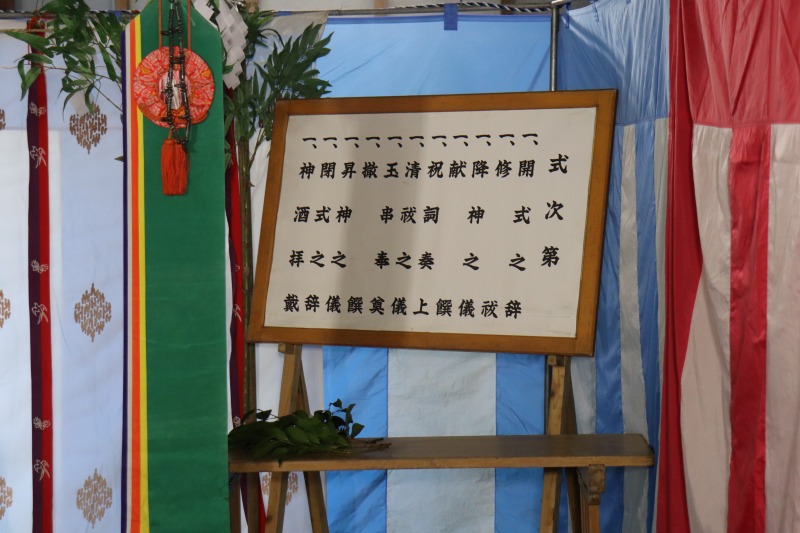 式次第
一、開式之辞
一、修祓
一、降神之儀
一、献饌
一、祝詞奏上
一、清祓之儀
一、玉串奉奠
一、撤饌
一、昇神之儀
一、閉式之辞
一、神酒拝戴